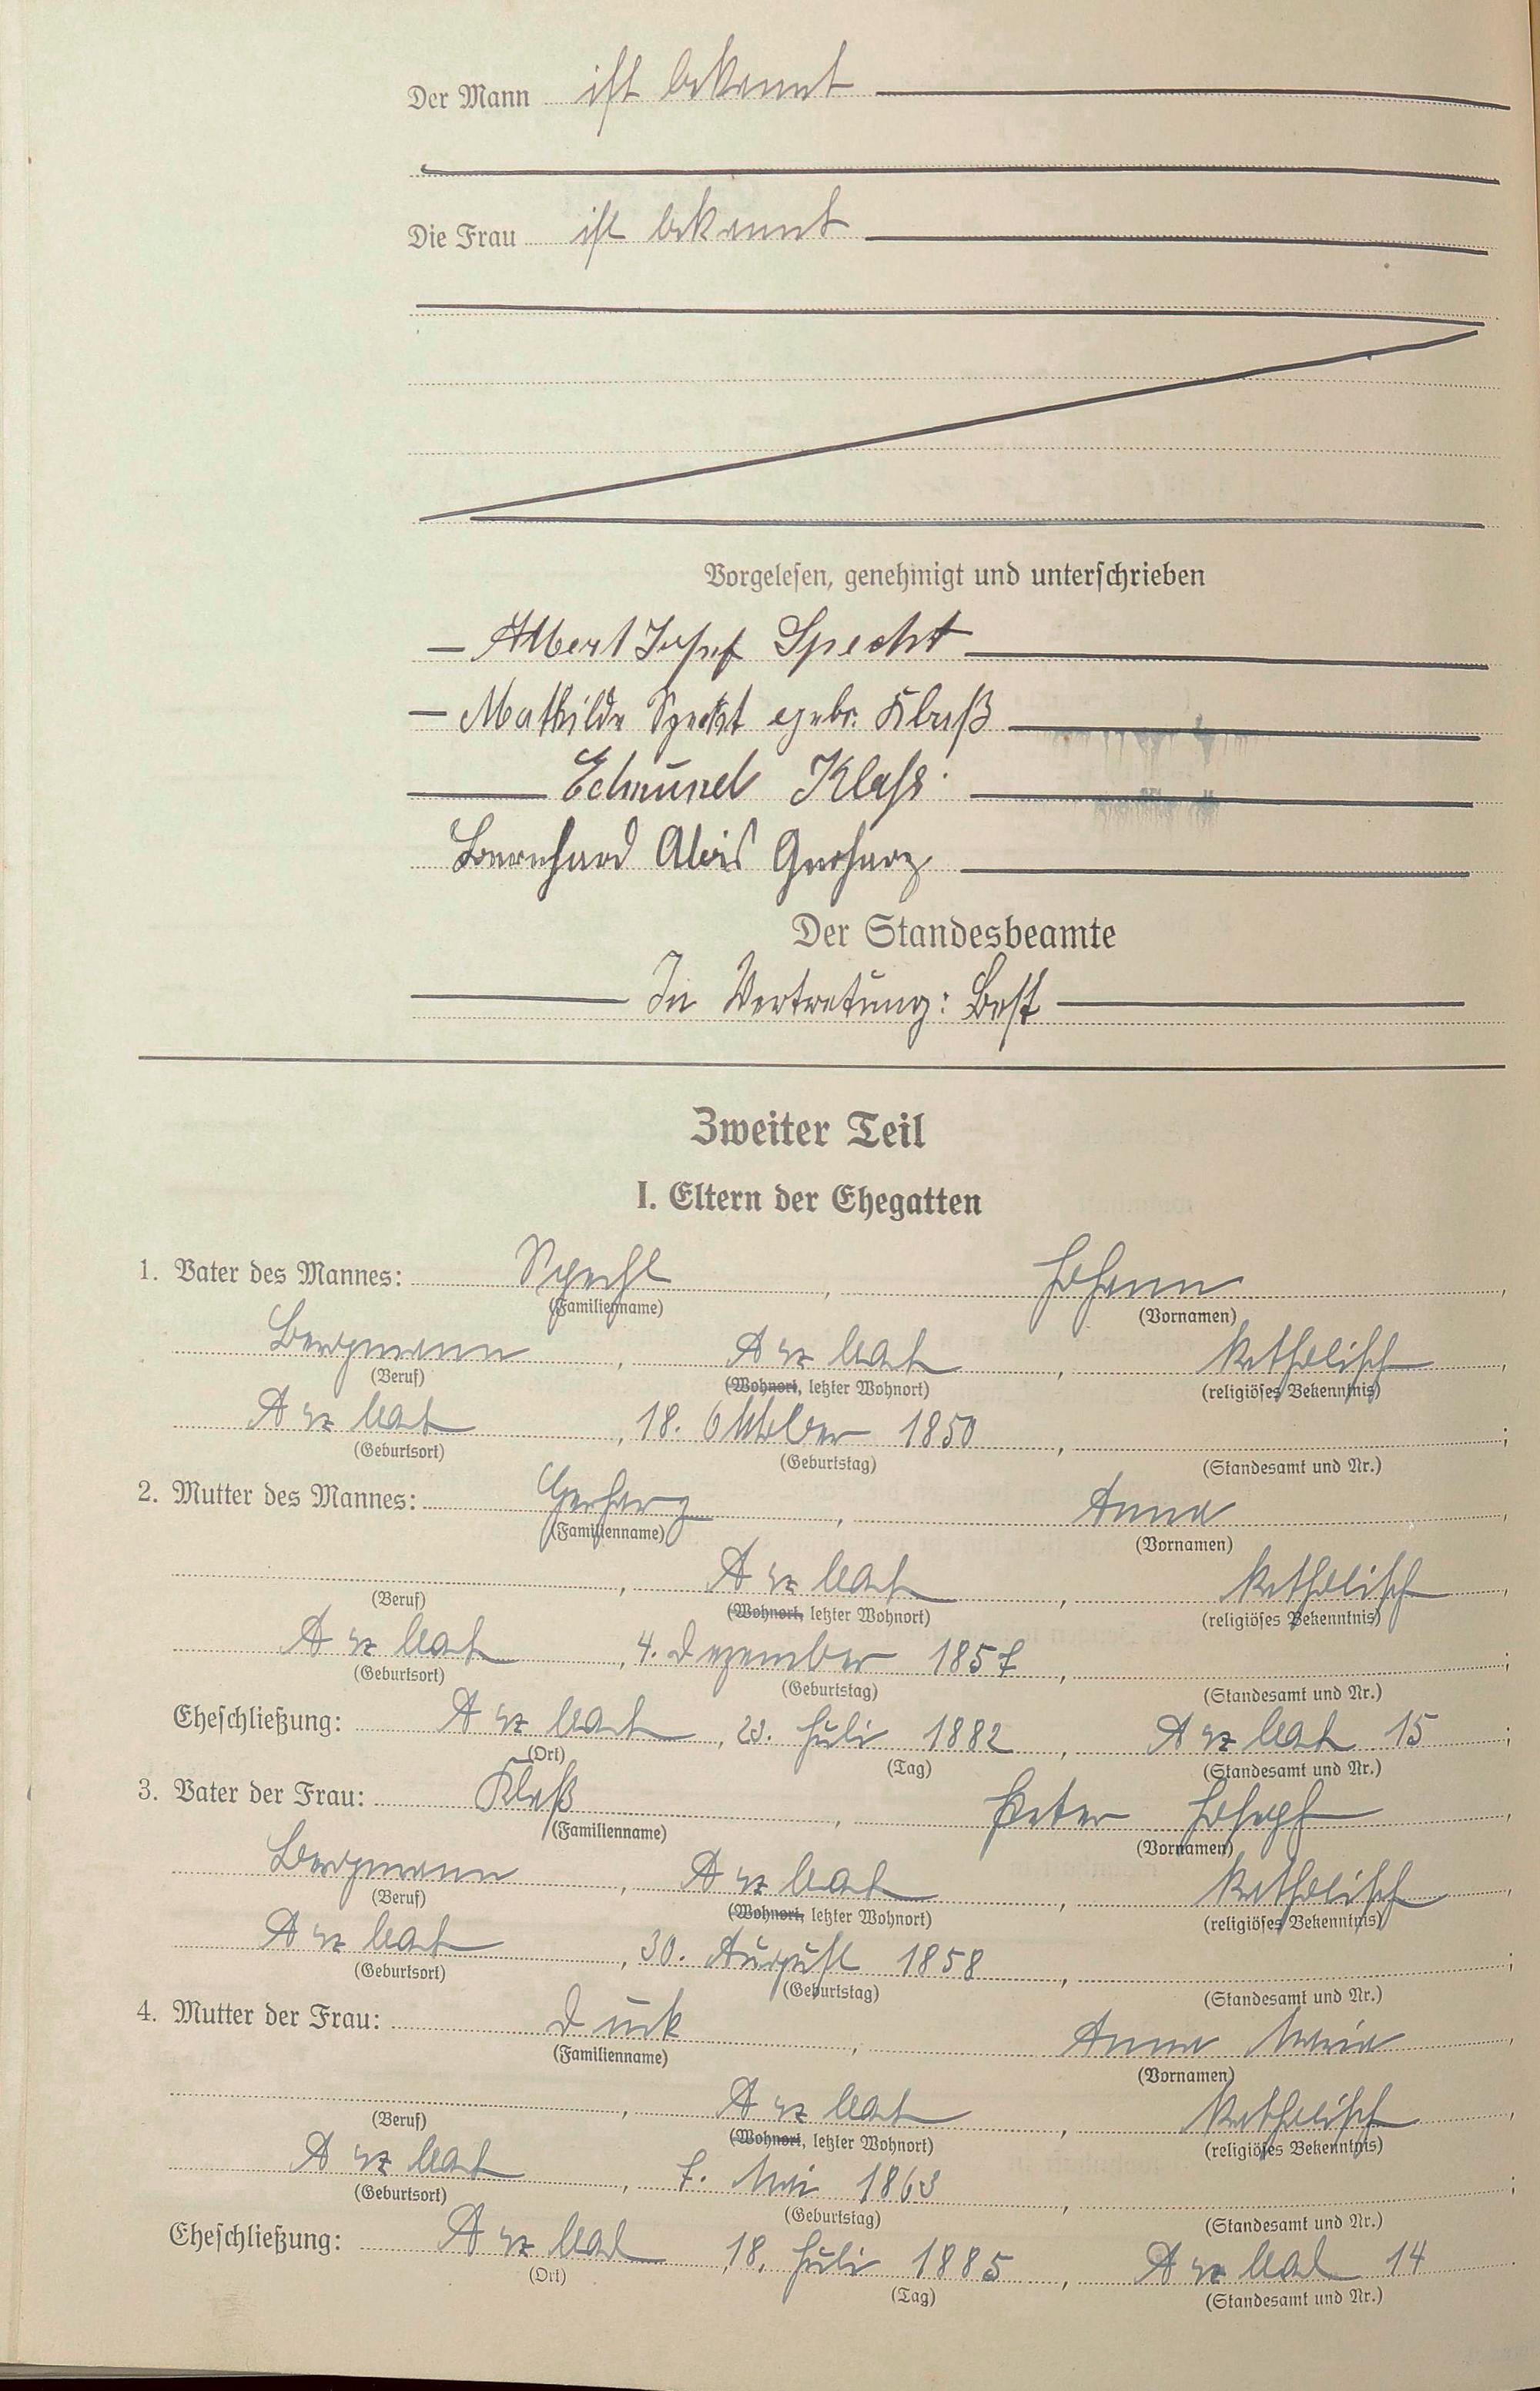 Der Mann ist bekannt
Die Frau ist bekannt
Vorgelesen, genehmigt und unterschrieben
Albert Josef Specht
Mathilde Specht gebr. Klaß
Edmund Klaß.
Bernhard Alois Gerharz
Der Standesbeamte
In Vertretung: Best
Zweiter Teil
I. Eltern der Ehegatten
1. Vater des Mannes: Specht, Johann,
(Familienname) (Vornamen)
Bergmann, Arzbach, katholisch,
(Beruf) (Wohnort, letzter Wohnort) (religiöses Bekenntnis)
Arzbach, 18. Oktober 1850, ;
(Geburtsort) (Geburtstag) (Standesamt und Nr.)
2. Mutter des Mannes: Gerharz, Anna,
(Familienname) (Vornamen)
, Arzbach, katholisch,
(Beruf) (Wohnort, letzter Wohnort) (religiöses Bekenntnis)
Arzbach, 4. Dezember 1857, ;
(Geburtsort) (Geburtstag) (Standesamt und Nr.)
Eheschließung: Arzbach, 23. Juli 1882, Arzbach 15;
(Ort) (Tag) (Standesamt und Nr.)
3. Vater der Frau: Klaß, Peter Joseph,
(Familienname) (Vornamen)
Bergmann, Arzbach, katholisch,
(Beruf) (Wohnort, letzter Wohnort) (religiöses Bekenntnis)
Arzbach, 30. August 1858, ;
(Geburtsort) (Geburtstag) (Standesamt und Nr.)
4. Mutter der Frau: Duck, Anna Maria,
(Familienname) (Vornamen)
, Arzbach, katholisch,
(Beruf) (Wohnort, letzter Wohnort) (religiöses Bekenntnis)
Arzbach, 7. Mai 1863, ;
(Geburtsort) (Geburtstag) (Standesamt und Nr.)
Eheschließung: Arzbach, 18. Juli 1885, Arzbach 14
(Ort) (Tag) (Standesamt und Nr.)